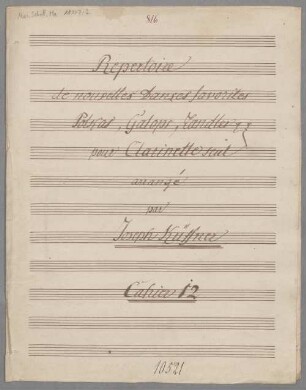 816
Repertoire
de nouvelles Danses favorites
Polkas, Galops, Ländler
pour Clarinette seul
arrangé
par
Joseph Küffner
Cahier 12
10521